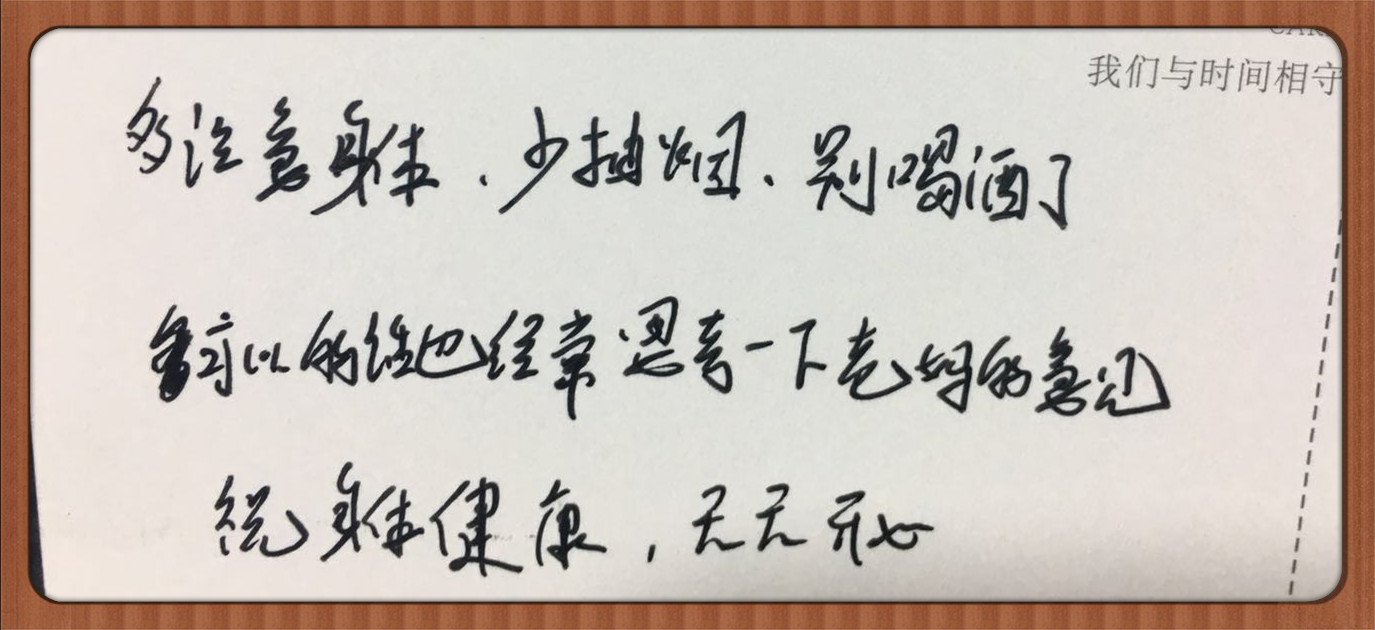 我们与时间相守
多注意身体.少抽烟、别喝酒了
可以的话也经常思考一下老妈的意见
祝身体健康,天天开心